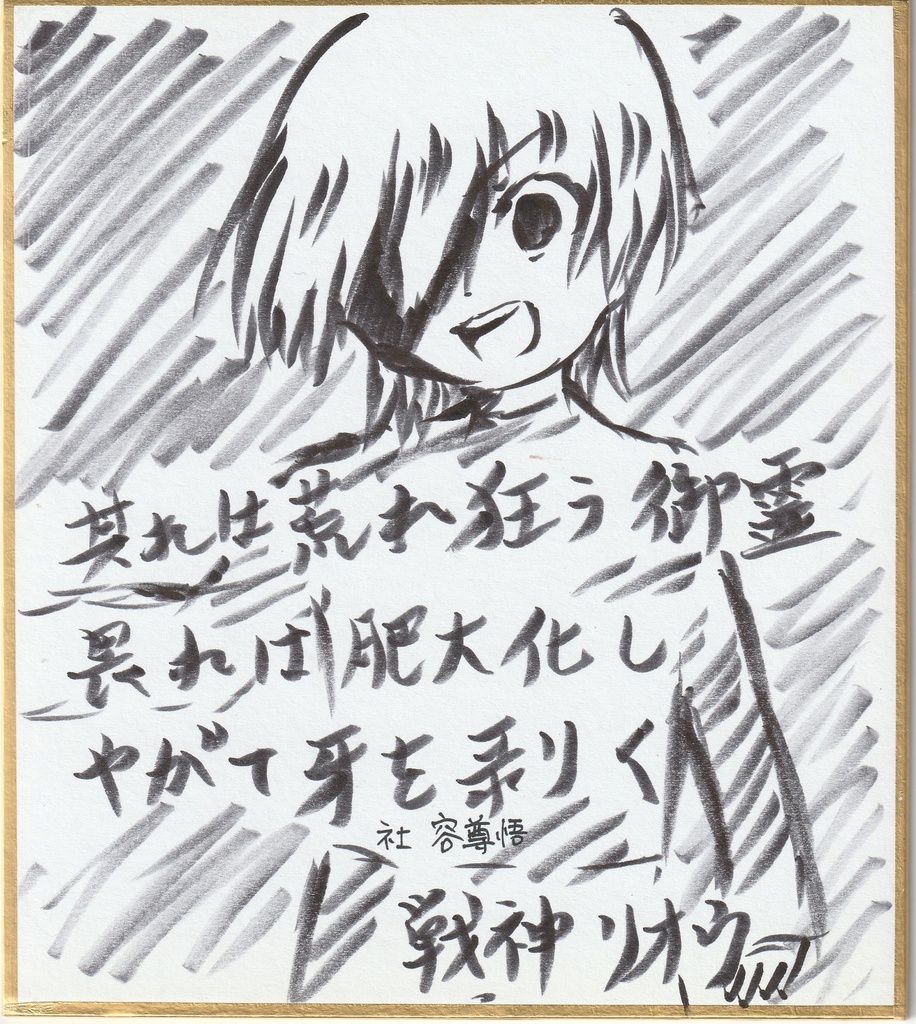 其れは荒れ狂う御霊
畏れば肥大化し
やがて牙を剥く
社 容尊悟
戦神リオウ